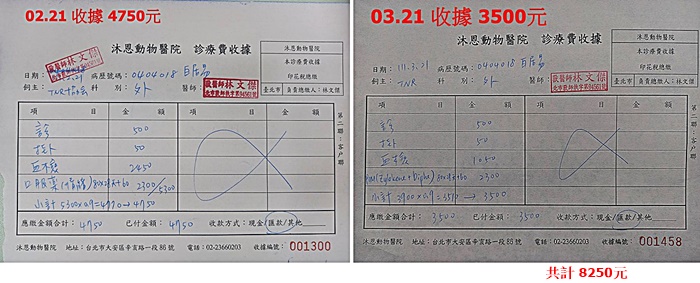 02.21 收據 4750元
沐恩動物醫院 診療費收據
沐恩動物醫院
本診療費收據
印花稅總繳
臺北市 負責總繳人:林文傑
日期:
病歷號碼:0404018 白居易
飼主:TNR協會
科別:外
醫師:
獸醫師林文傑
項 目 金 額 項 目 金 額
診 500
掛 50
血 2450
2300
5300
小計 5300×0.9=4770→4750
應繳金額合計:4750 已付金額:4750 收款方式:現金/匯款/其他
第二聯:客戶聯
沐恩動物醫院 地址:台北市大安區辛亥路一段86號 電話:02-23660203 收據編號:001300
03.21 收據 3500元
沐恩動物醫院 診療費收據
沐恩動物醫院
本診療費收據
印花稅總繳
臺北市 負責總繳人:林文傑
日期:111.3.21
病歷號碼:0404018 白居易
飼主:TNR
科別:外
醫師:
獸醫師林文傑
項 目 金 額 項 目 金 額
診 500
掛 50
血 1050
2300
小計 3900×0.9=3510→3500
應繳金額合計:3500 已付金額:3500 收款方式:現金/匯款/其他
第二聯:客戶聯
沐恩動物醫院 地址:台北市大安區辛亥路一段86號 電話:02-23660203 收據編號:001458
共計 8250元